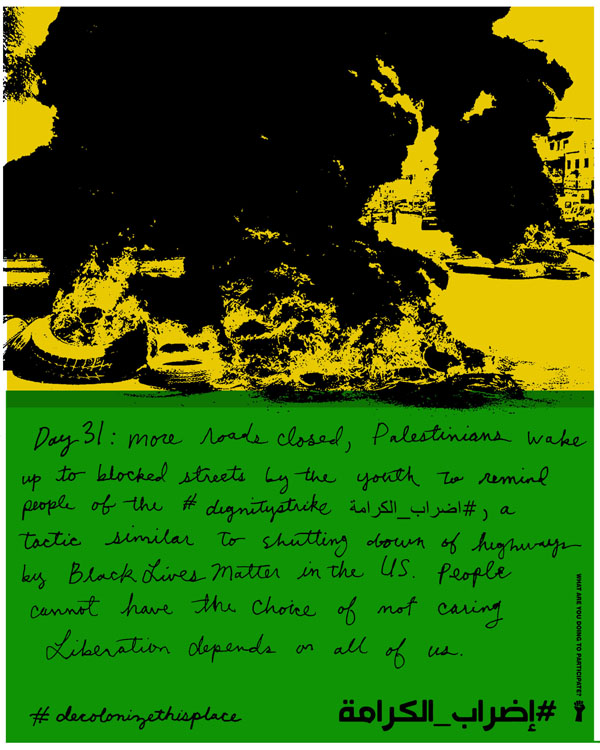 Day 31: more roads closed, Palestinians wake
up to blocked streets by the youth to remind
people of the # dignitystrike #اضراب_الكرامة, a
tactic similar to shutting down of highways
by Black Lives Matter in the US. People
cannot have the choice of not caring
Liberation depends on all of us.
WHAT ARE YOU DOING TO PARTICIPATE?
# decolonizethisplace
#إضراب_الكرامة